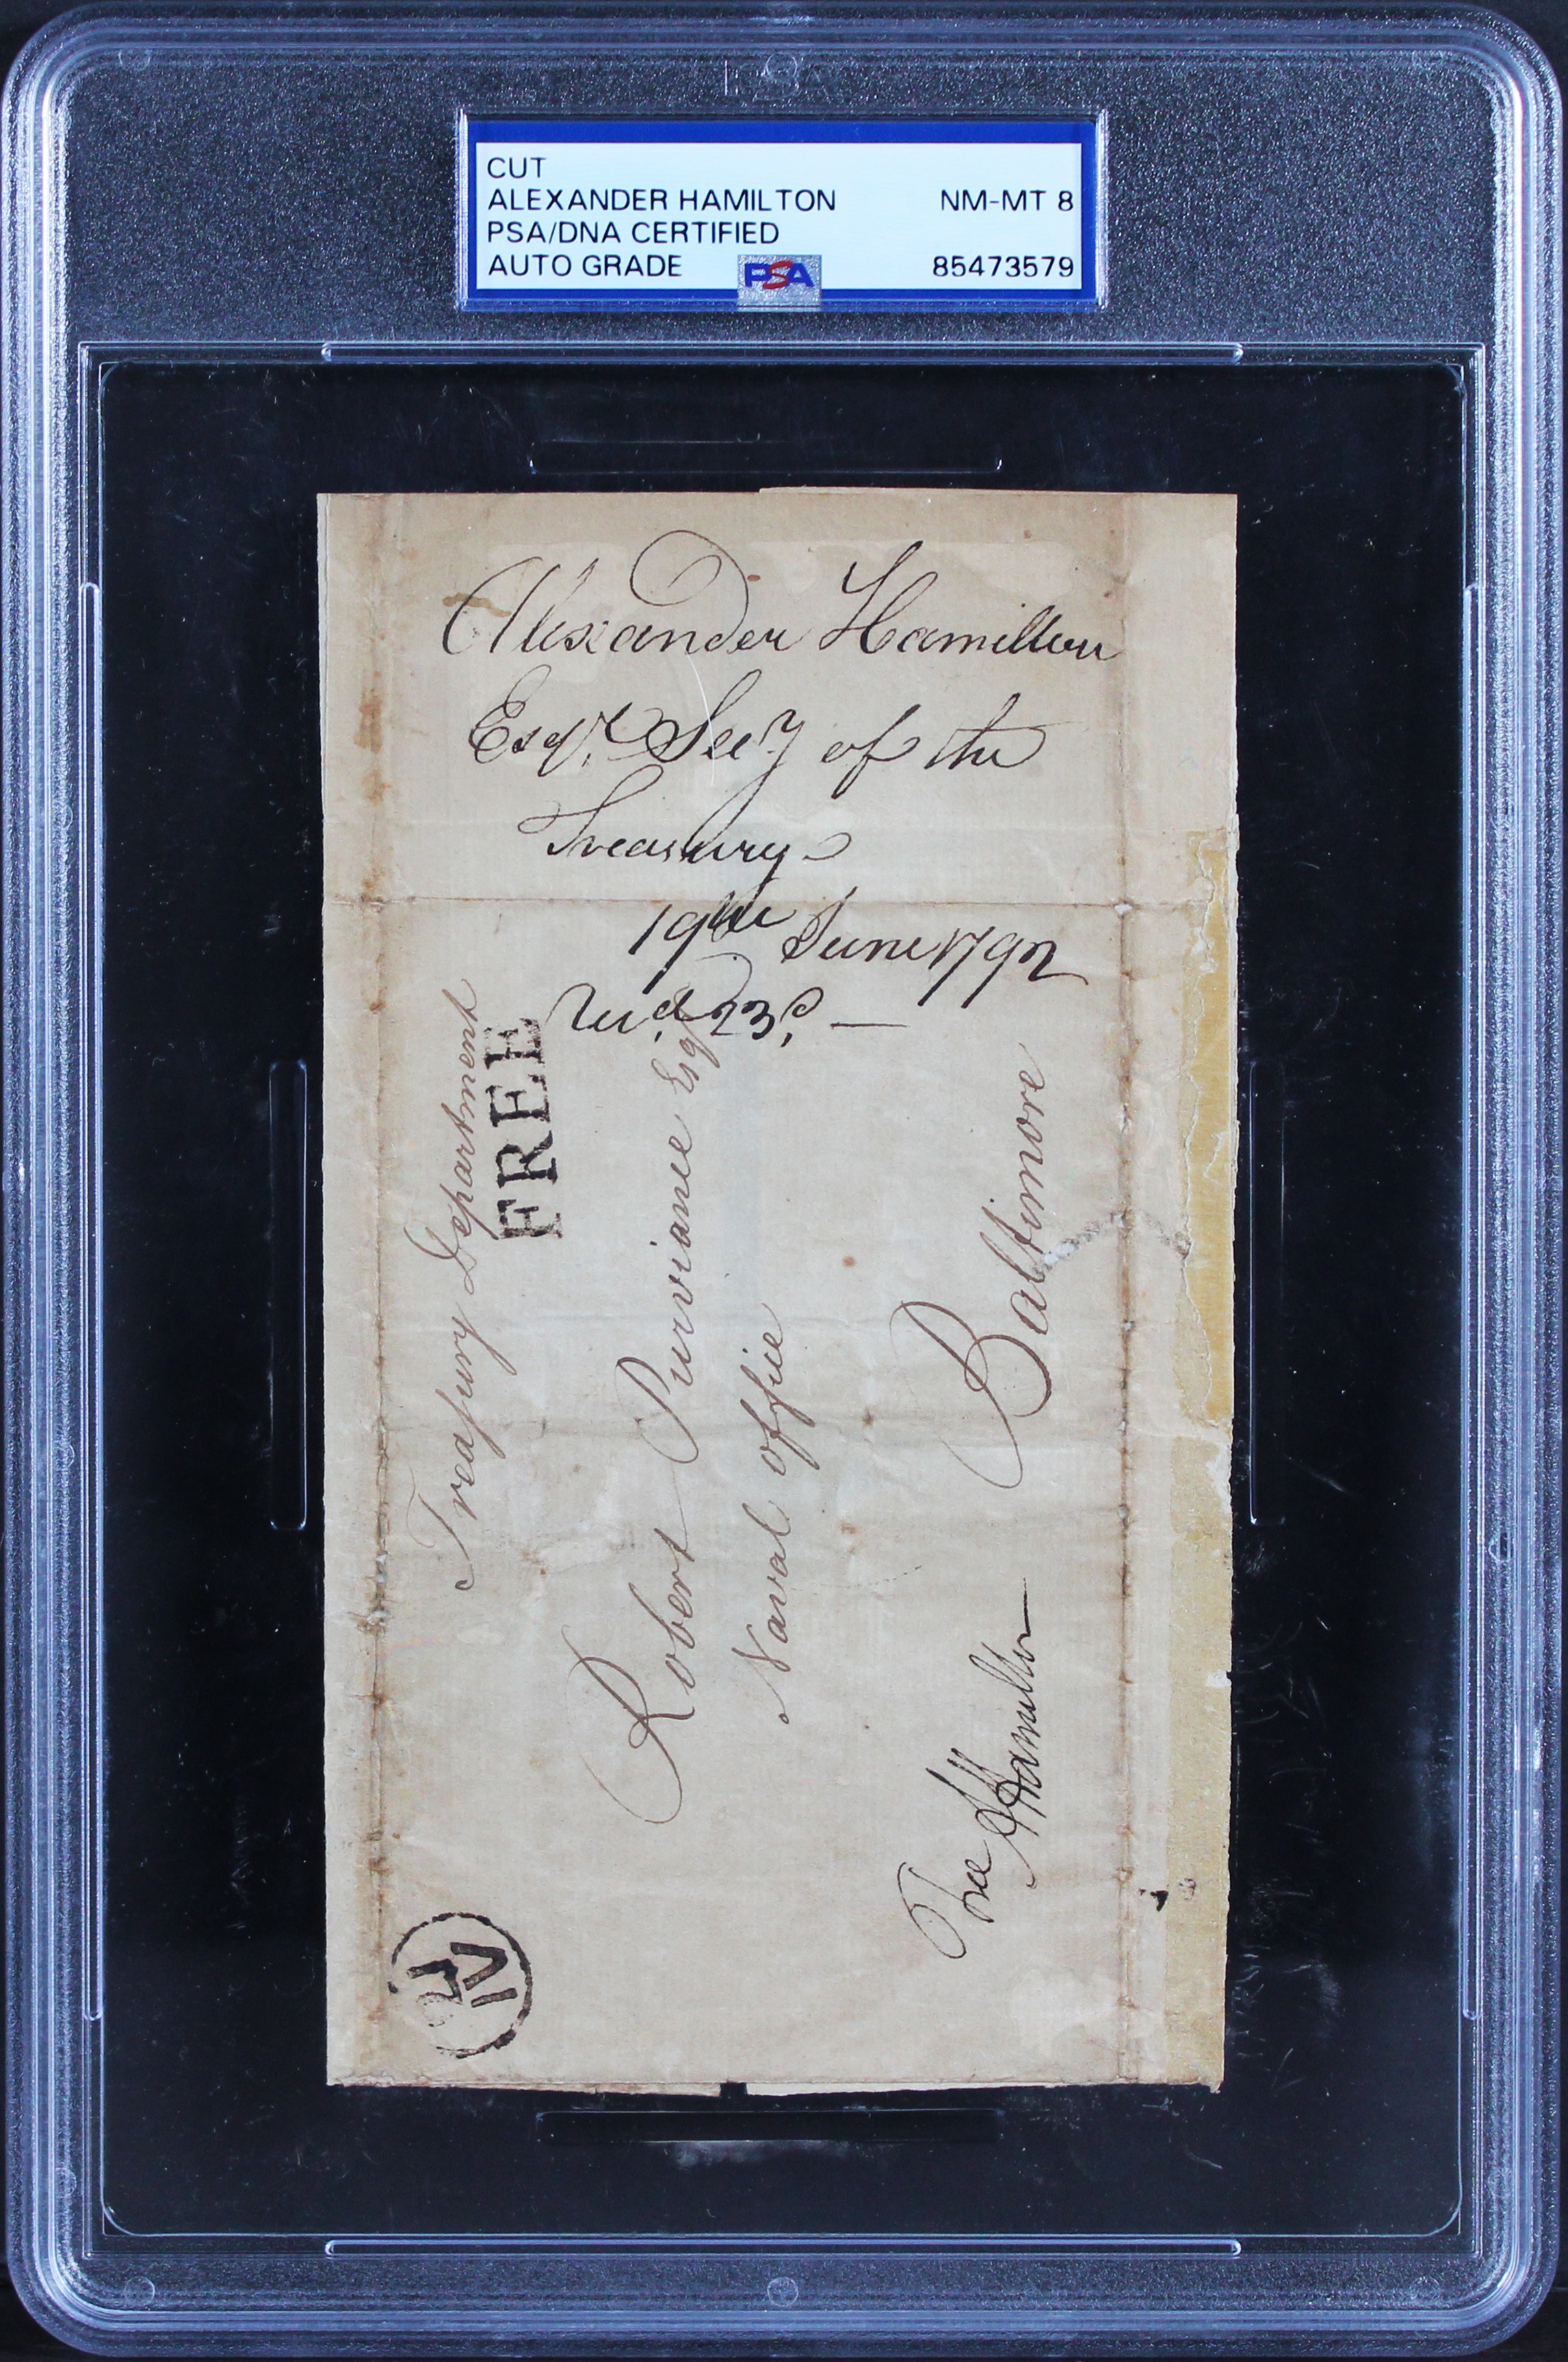 CUT
ALEXANDER HAMILTON NM-MT 8
PSA/DNA CERTIFIED
AUTO GRADE PSA 85473579
Alexander Hamilton
Esqr. Secy of the
Treasury
19th June 1792
Recd. 23d. —
Treasury Department
FREE
Robert Purviance Esqr
Naval office
Baltimore
Free AHamilton